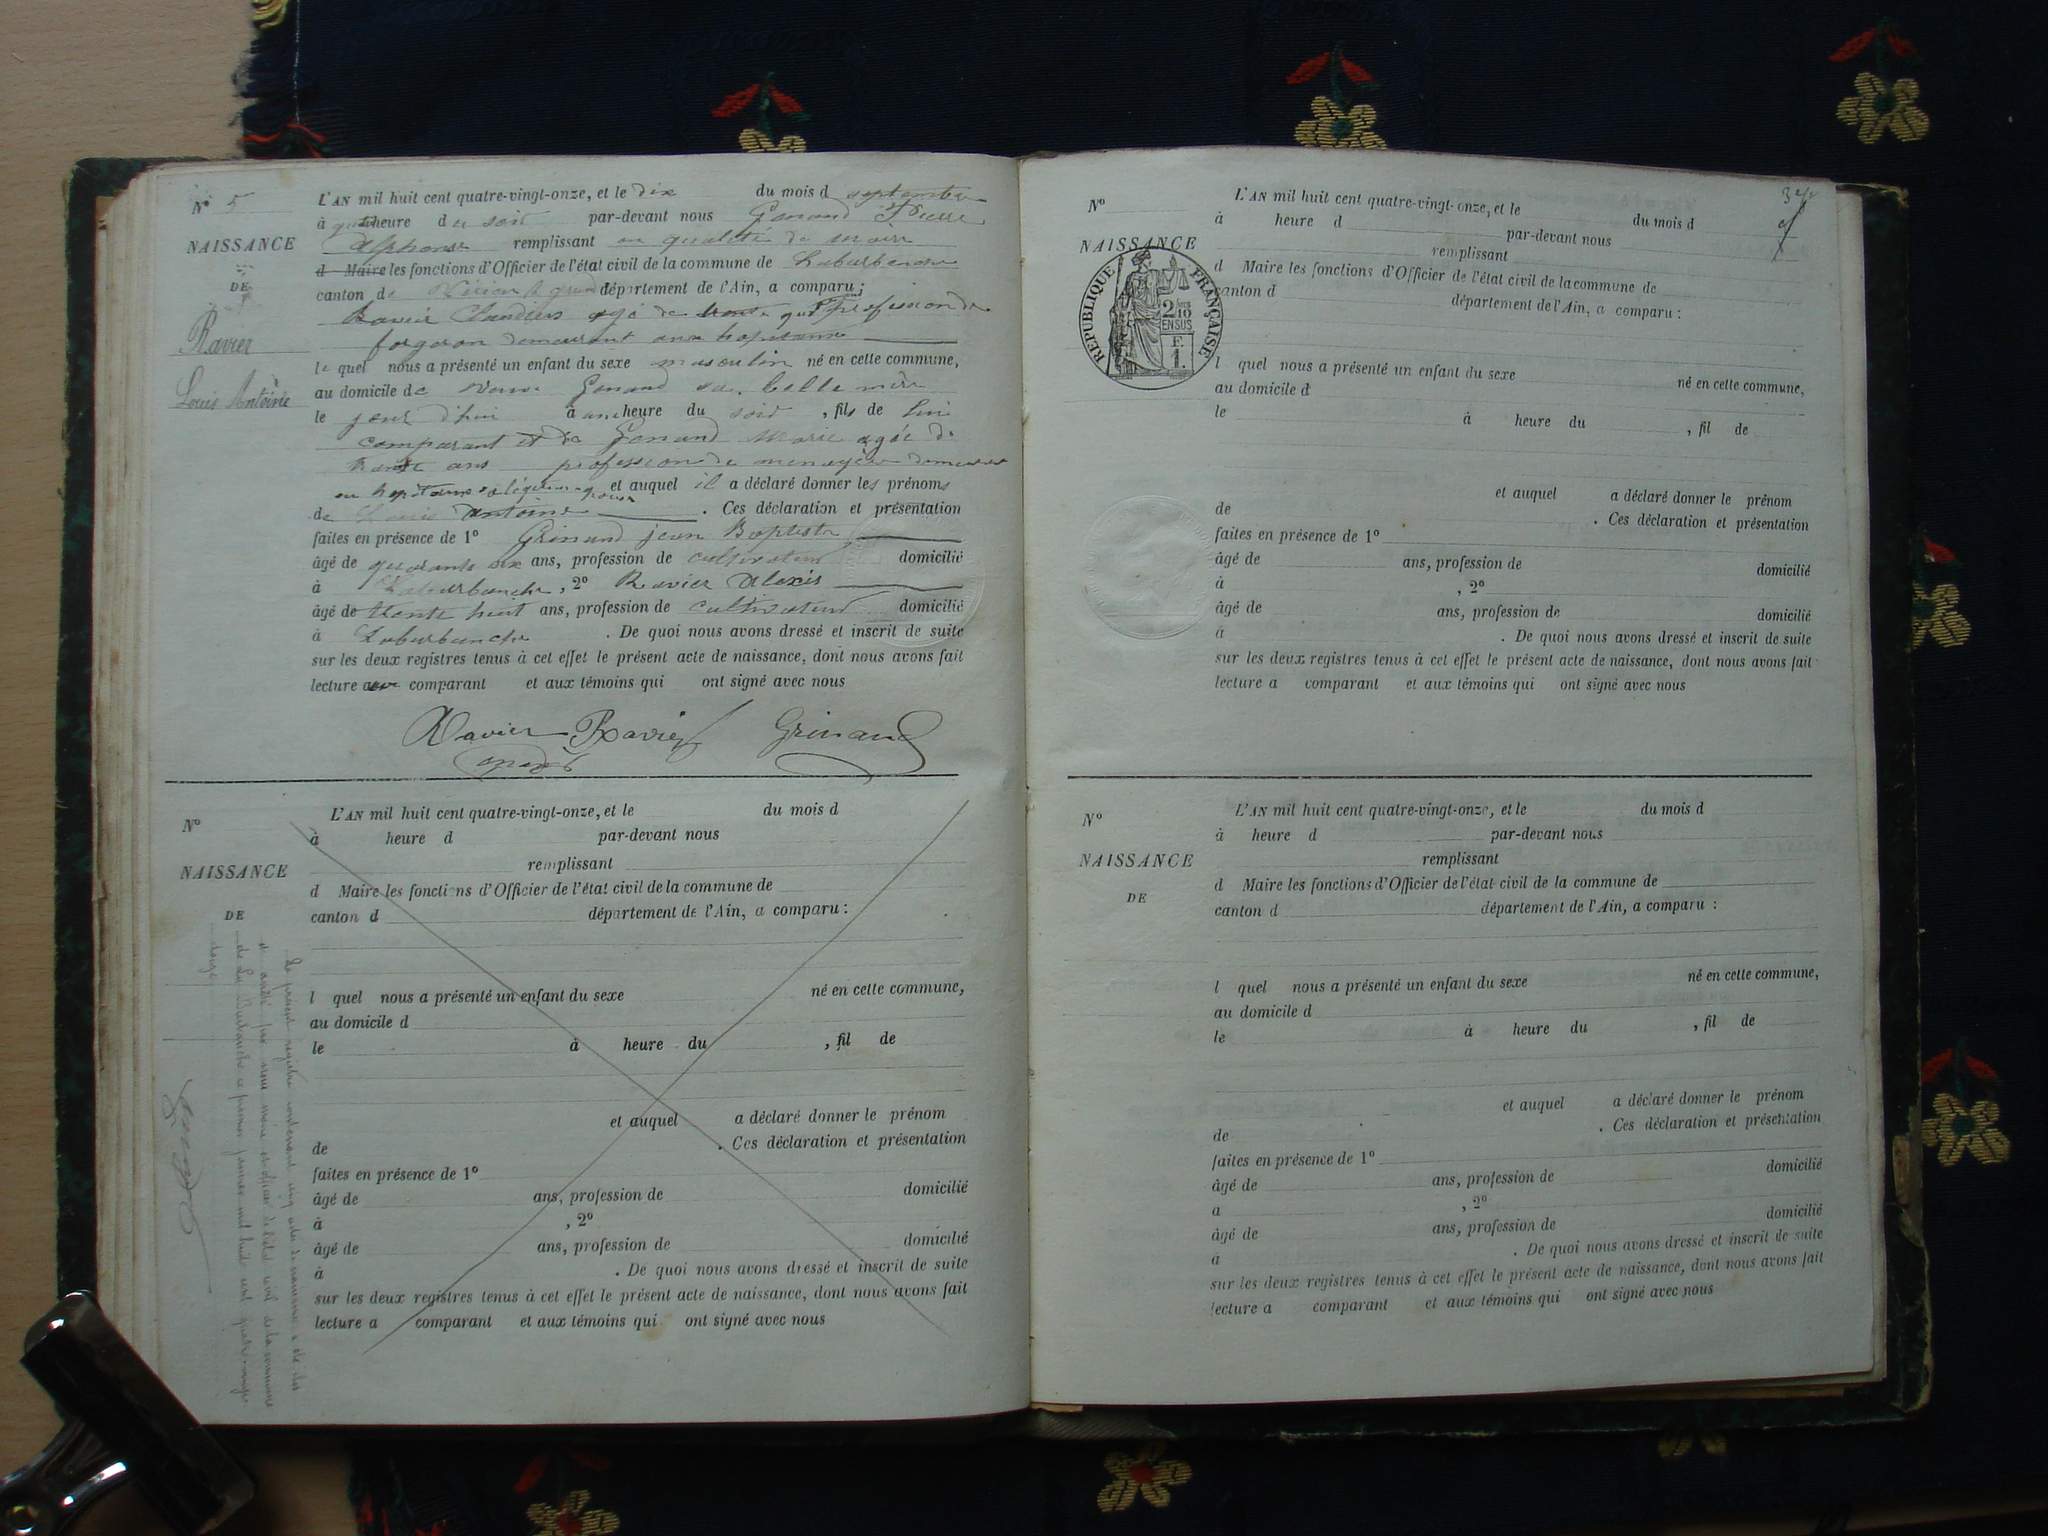 N° 5
NAISSANCE
DE
Ravier
Louis Antoine
L'AN mil huit cent quatre-vingt-onze, et le dix du mois d septembre
à heure du soir par-devant nous Genand Pierre
Alphonse remplissant en qualité de maire
d Maire les fonctions d'Officier de l'état civil de la commune de Laburbanche
canton de Virieu le grand département de l'Ain, a comparu ;
Ravier Claudius agé de trente quatre profession de
forgeron demeurant aux hopitaux
le quel nous a présenté un enfant du sexe masculin né en cette commune,
au domicile de veuve Genand sa belle mère
le jour d'hui à une heure du soir , fils de lui
comparant et de Genand Marie agée de
trente ans profession de menagère demeurant
et auquel il a déclaré donner les prénoms
de Louis Antoine . Ces déclaration et présentation
faites en présence de 1° Grinand jean Baptiste
âgé de quarante six ans, profession de cultivateur domicilié
à Laburbanche , 2° Ravier Alexis
âgé de trente huit ans, profession de cultivateur domicilié
à Laburbanche . De quoi nous avons dressé et inscrit de suite
sur les deux registres tenus à cet effet le présent acte de naissance, dont nous avons fait
lecture au comparant et aux témoins qui ont signé avec nous
Ravier Ravier Grinand
N°
NAISSANCE
DE
L'AN mil huit cent quatre-vingt-onze, et le du mois d
à heure d par-devant nous
remplissant
d Maire les fonctions d'Officier de l'état civil de la commune de
canton d département de l'Ain, a comparu :
l quel nous a présenté un enfant du sexe né en cette commune,
au domicile d
le à heure du , fil de
et auquel a déclaré donner le prénom
de . Ces déclaration et présentation
faites en présence de 1°
âgé de ans, profession de domicilié
à , 2°
âgé de ans, profession de domicilié
à . De quoi nous avons dressé et inscrit de suite
sur les deux registres tenus à cet effet le présent acte de naissance, dont nous avons fait
lecture a comparant et aux témoins qui ont signé avec nous
Le présent registre contenant cinq actes de naissance a été clos
et arrêté par nous maire et officier de l'état civil de la commune
de La Burbanche ce premier janvier mil huit cent quatre vingt
douze
N°
NAISSANCE
RÉPUBLIQUE FRANÇAISE
2/10
EN SUS
F.
1.
L'AN mil huit cent quatre-vingt-onze, et le du mois d
à heure d par-devant nous
remplissant
d Maire les fonctions d'Officier de l'état civil de la commune de
canton d département de l'Ain, a comparu :
l quel nous a présenté un enfant du sexe né en cette commune,
au domicile d
le à heure du , fil de
et auquel a déclaré donner le prénom
de . Ces déclaration et présentation
faites en présence de 1°
âgé de ans, profession de domicilié
à , 2°
âgé de ans, profession de domicilié
à . De quoi nous avons dressé et inscrit de suite
sur les deux registres tenus à cet effet le présent acte de naissance, dont nous avons fait
lecture a comparant et aux témoins qui ont signé avec nous
N°
NAISSANCE
DE
L'AN mil huit cent quatre-vingt-onze, et le du mois d
à heure d par-devant nous
remplissant
d Maire les fonctions d'Officier de l'état civil de la commune de
canton d département de l'Ain, a comparu :
l quel nous a présenté un enfant du sexe né en cette commune,
au domicile d
le à heure du , fil de
et auquel a déclaré donner le prénom
de . Ces déclaration et présentation
faites en présence de 1°
âgé de ans, profession de domicilié
a , 2°
âgé de ans, profession de domicilié
a . De quoi nous avons dressé et inscrit de suite
sur les deux registres tenus à cet effet le présent acte de naissance, dont nous avons fait
lecture a comparant et aux témoins qui ont signé avec nous